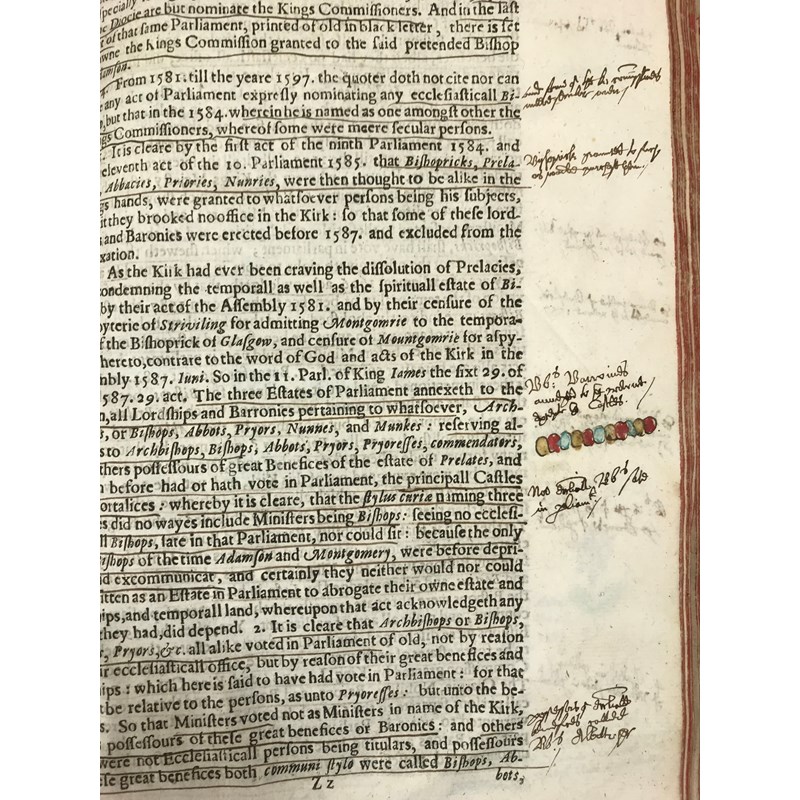 pecially
Diocie are but nominate the Kings Commissioners. And in the last
of that same Parliament, printed of old in black letter, there is set
owne the Kings Commission granted to the said pretended Bishop
amson.
From 1581. till the yeare 1597. the quoter doth not cite nor can
any act of Parliament expresly nominating any ecclesiasticall Bi-
, but that in the 1584. wherein he is named as one amongst other the
gs Commissioners, whereof some were meere secular persons.
It is cleare by the first act of the ninth Parliament 1584. and
eleventh act of the 10. Parliament 1585. that Bishopricks, Prela-
Abbacies, Priories, Nunries, were then thought to be alike in the
gs hands, were granted to whatsoever persons being his subjects,
it they brooked no office in the Kirk: so that some of these lord-
s and Baronies were erected before 1587. and excluded from the
xation.
As the Kirk had ever been craving the dissolution of Prelacies,
ondemning the temporall as well as the spirituall estate of Bi-
by their act of the Assembly 1581. and by their censure of the
byterie of Striviling for admitting Montgomrie to the tempora-
f the Bishoprick of Glasgow, and censure of Mountgomrie for aspy-
hereto, contrare to the word of God and acts of the Kirk in the
mbly 1587. Iuni. So in the 11. Parl. of King Iames the sixt 29. of
587. 29. act. The three Estates of Parliament annexeth to the
n, all Lordships and Barronies pertaining to whatsoever, Arch-
s, or Bishops, Abbots, Pryors, Nunnes, and Munkes: reserving al-
s to Archbishops, Bishops, Abbots, Pryors, Pryoresses, commendators,
thers possessours of great Benefices of the estate of Prelates, and
h before had or hath vote in Parliament, the principall Castles
ortalices: whereby it is cleare, that the stylus curiæ naming three
es did no wayes include Ministers being Bishops: seeing no ecclesi-
ll Bishops, sate in that Parliament, nor could sit: because the only
ishops of the time Adamson and Montgomery, were before depri-
d excommunicat, and certainly they neither would nor could
itten as an Estate in Parliament to abrogate their owne estate and
ips, and temporall land, whereupon that act acknowledgeth any
they had, did depend. 2. It is cleare that Archbishops or Bishops,
, Pryors, &c. all alike voted in Parliament of old, not by reason
ir ecclesiasticall office, but by reason of their great benefices and
ips: which here is said to have had vote in Parliament: for that
t be relative to the persons, as unto Pryoresses: but unto the be-
s. So that Ministers voted not as Ministers in name of the Kirk,
possessours of these great benefices or Baronies: and others
were not Ecclesiasticall persons being titulars, and possessours
se great benefices both communi stylo were called Bishops, Ab-
Z z
bots,